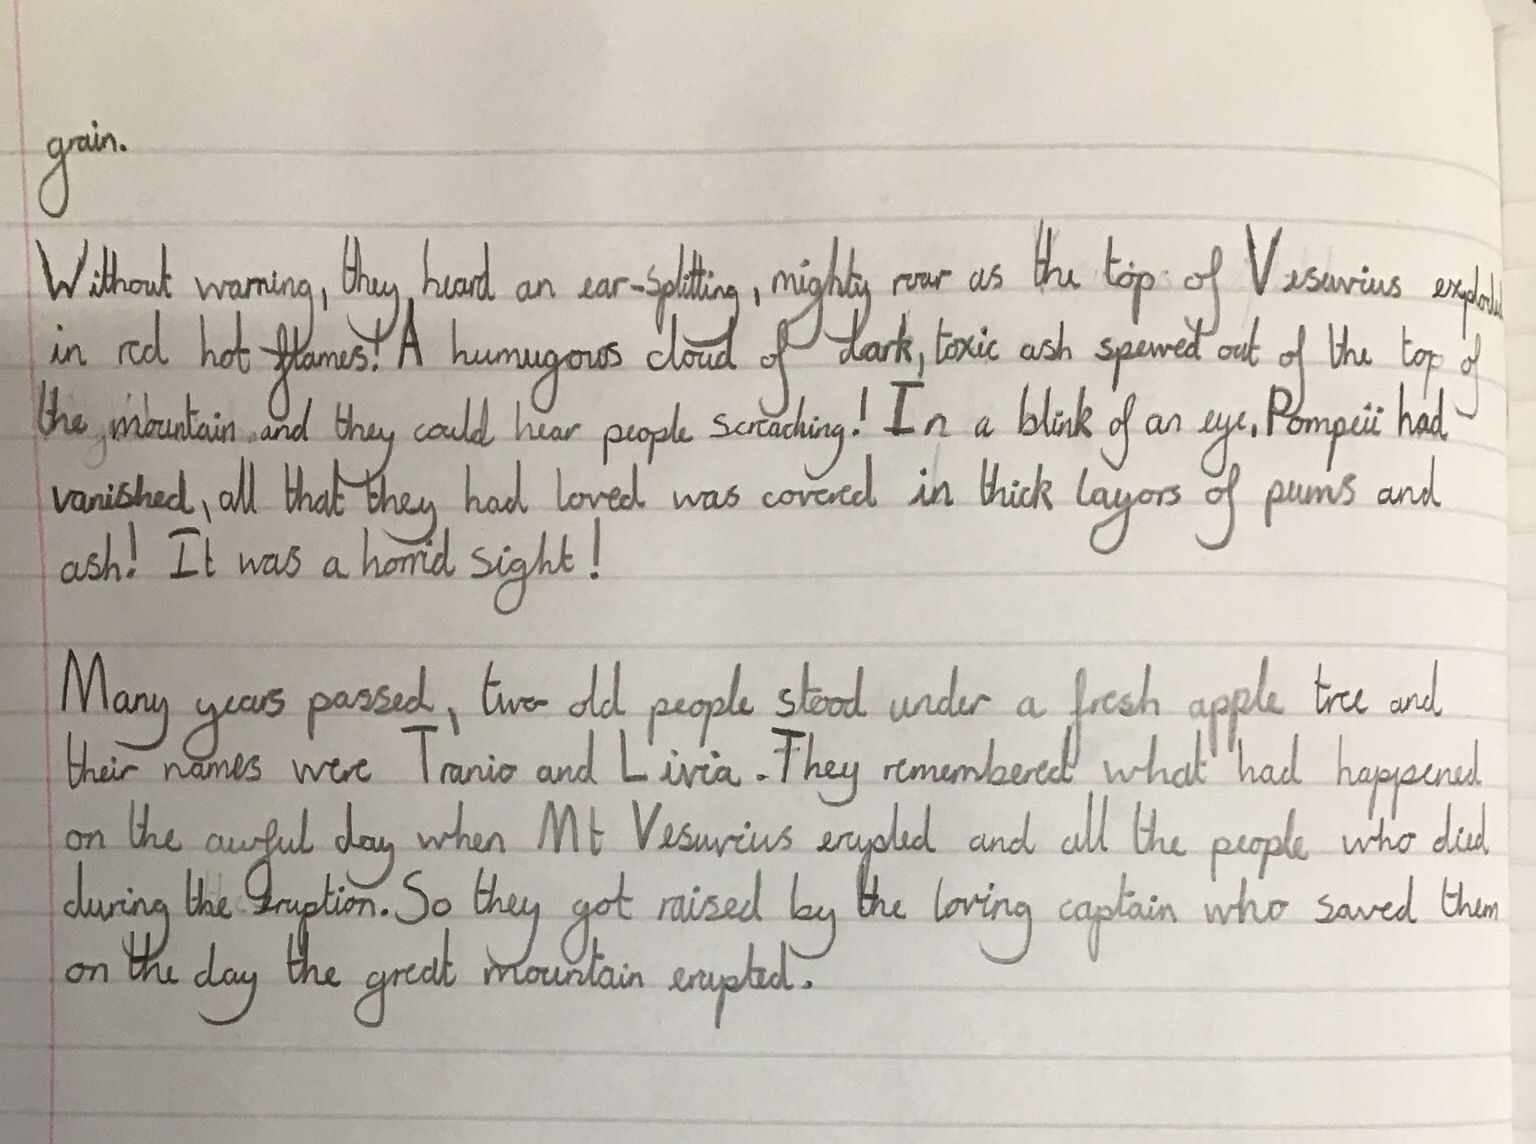 grain.
Without warning, they heard an ear-splitting, mighty roar as the top of Vesuvius exploded
in red hot flames! A humugous cloud of dark, toxic ash spewed out of the top of
the mountain and they could hear people screaching! In a blink of an eye, Pompeii had
vanished, all that they had loved was covered in thick layors of pums and
ash! It was a horrid sight!
Many years passed, two old people stood under a fresh apple tree and
their names were Tranio and Livia. They remembered what had happened
on the awful day when Mt Vesuvius erupted and all the people who died
during the eruption. So they got raised by the loving captain who saved them
on the day the great mountain erupted.